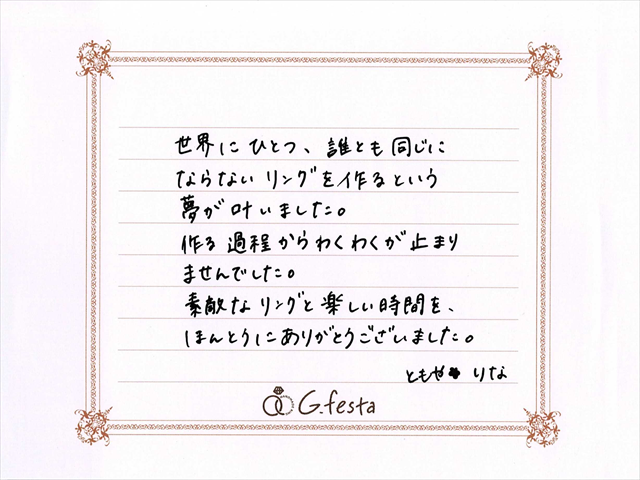 世界にひとつ、誰とも同じに
ならないリングを作るという
夢が叶いました。
作る過程からわくわくが止まり
ませんでした。
素敵なリングと楽しい時間を、
ほんとうにありがとうございました。
ともや りな
G.festa